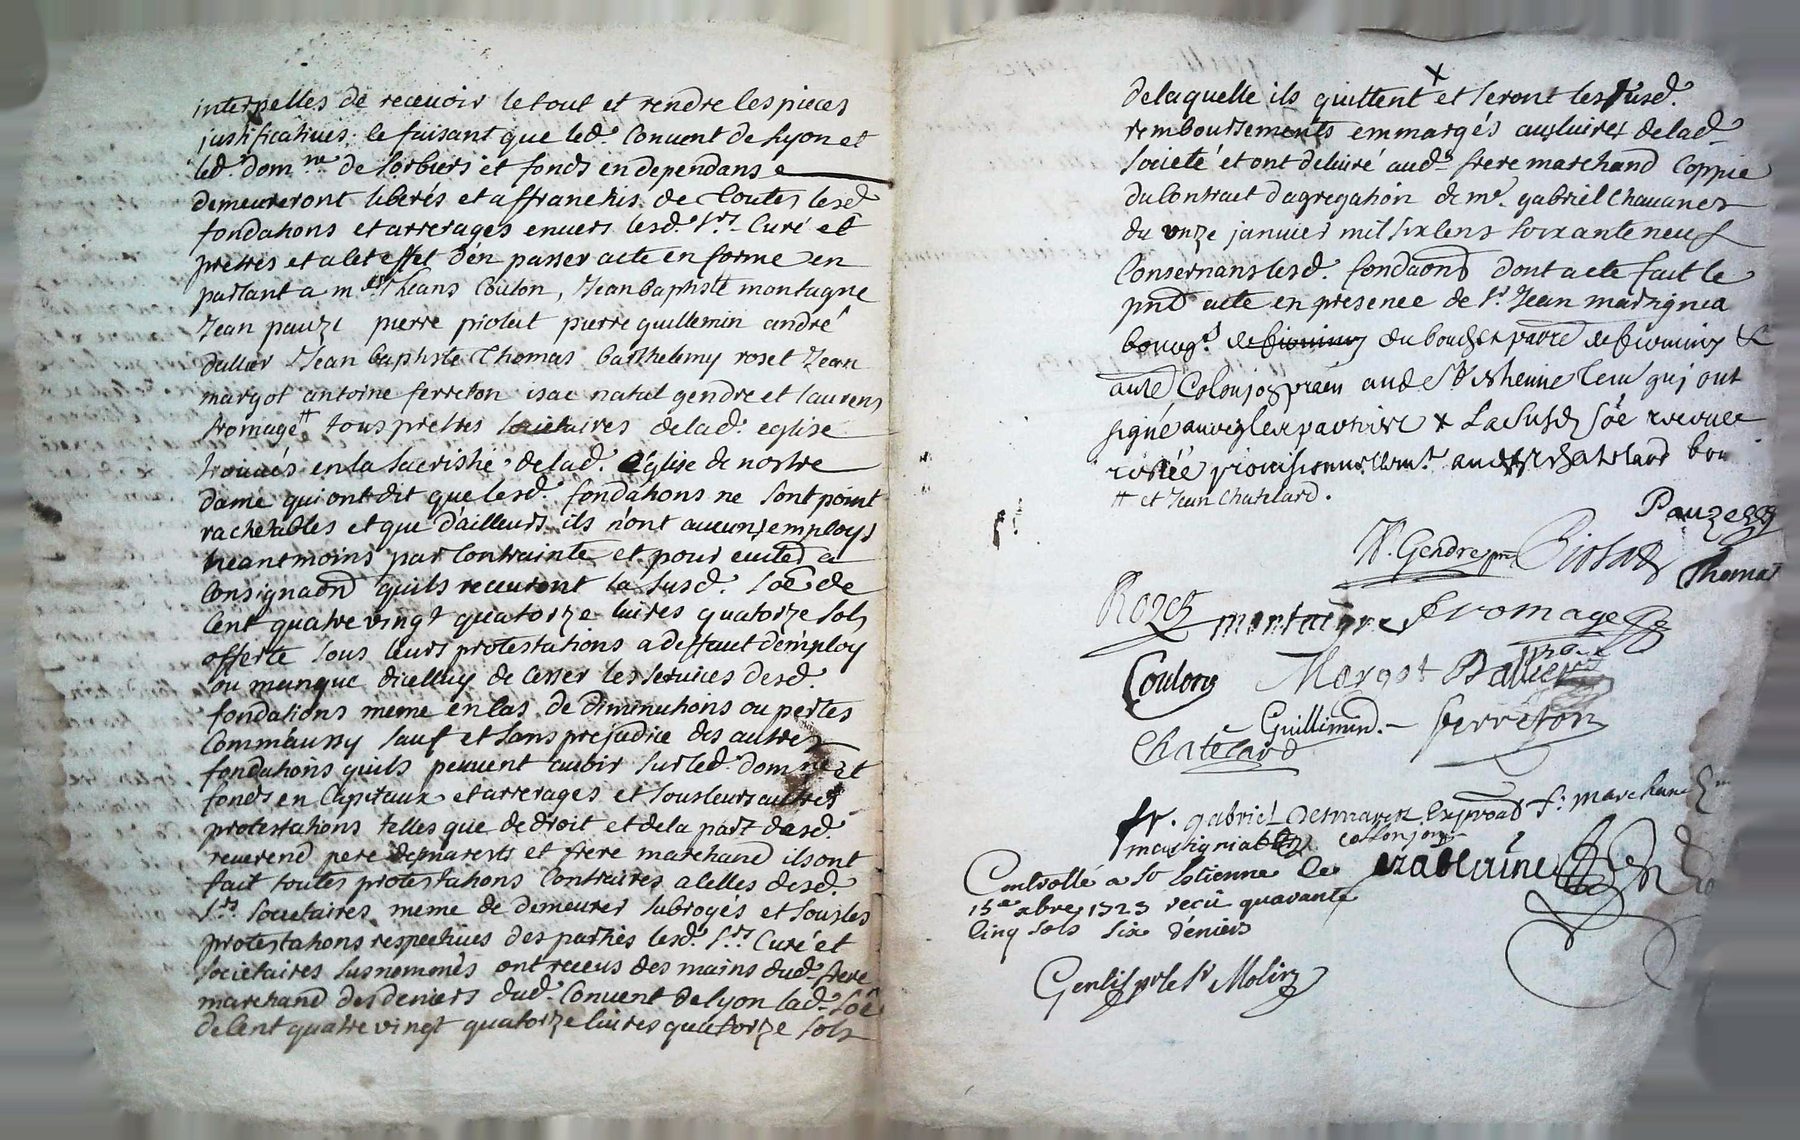 interpellés de recevoir le tout et rendre les pieces
justificatives, le faisant que led. Convent de Lyon et
led. dom.ne de Sorbiers et fonds en dependans
demeureront liberés et affranchis de toutes lesd.
fondations et arrerages envers lesd. Srs. Curé et
pretres et a cet effet d'en passer acte en forme en
parlant a mrs Coulon, Jean baptiste montagne
Jean pauze pierre piolat pierre guillemin andré
dallier Jean baptiste Thomas barthelemy roset Jean
margot antoine ferreton isac natal gendre et laurens
fromage # tous pretres societaires delad. eglise
trouvés en la sacristie delad. Eglise de nostre
dame qui ont dit que lesd. fondations ne sont point
rachetables et que d'ailleurs ils n'ont aucuns employs
neantmoins par contrainte et pour eviter a
Consignaon quils recevront la susd. soe de
Cent quatre vingt quatorze livres quatorze sols
offerte sous leurs protestations a deffaut d'employ
ou manque dicelluy de cesser les services desd.
fondations meme en cas de diminutions ou pertes
Comm'aussy sauf et sans prejudice des autres
fondations quils peuvent avoir sur led. domne et
fonds en Capitaux et arrerages et sous leurs autres
protestations telles que de droit et de la part desd.
reverend pere desmarests et frere marchand ils ont
fait toutes protestations Contraires a celles desd.
Srs. societaires meme de demeurer subrogés et sous les
protestations respectives des parties lesd. Srs. Curé et
societaires susnommés ont receus des mains dud. frere
marchand des deniers dud. Convent de Lyon lad. soe
de Cent quatre vingt quatorze livres quatorze sols
de laquelle ils quittent x et seront les susd.
remboursements emmargés aux livres delad.
Societé et ont delivré aud. frere marchand Coppie
du Contract d'agregation de mr. gabriel Chavanes
du unze janvier mil six cens soixante neuf
Consernans lesd. fondaons dont acte fait le
pnt acte en presence de Sr. Jean
bourg. de du de &
aud. St Estienne qui ont
signé x La susd. soe receue
provisionnellemt.
# et Jean Chatelard.
Pauze
N. Gendre pre Piolat Thomas
Rozet montaigne Fromage
Coulon Margot Dallier
Guillimin. Ferreton
Chatelard
fr. gabriel Desmarest f. marchand
Collonjon
Controllé a St Estienne le
15e xbre 1723 recû quarante
Cinq sols six deniers
Gentil pr le Sr Molin